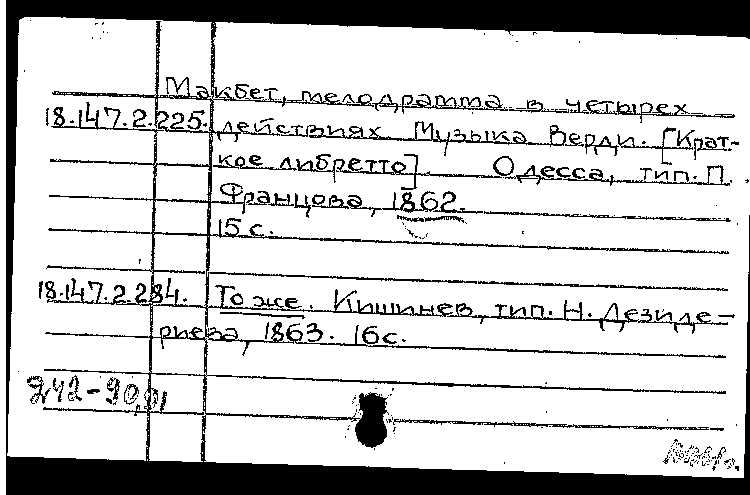 Макбет, мелодрамма в четырех
18.147.2.225. действиях Музыка Верди. [Крат-
кое либретто]. Одесса, тип. П.
Францова, 1862.
15 с.
18.147.2.284. То же. Кишинев, тип. Н. Дезиде-
риева, 1863. 16 с.
242-90,91